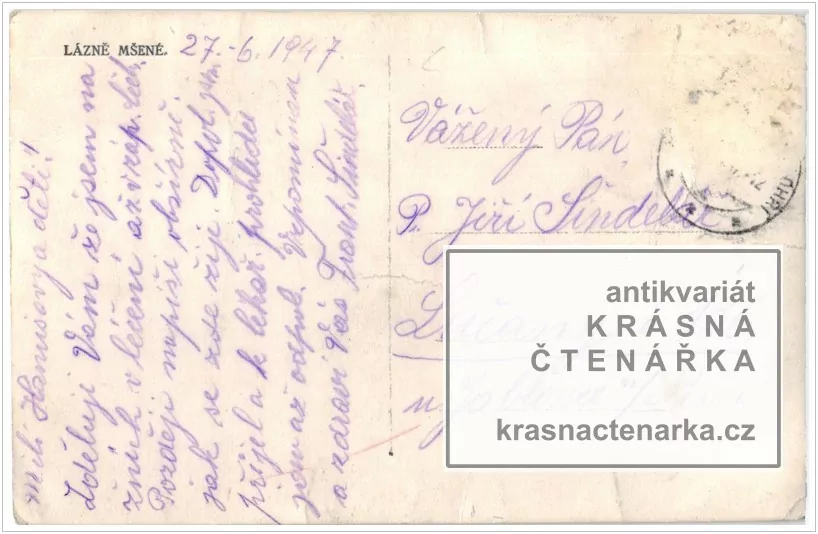 LÁZNĚ MŠENÉ.
27.-6.1947.
milí Hanusovy a děti!
Sděluje Vám že jsem na
v léčení až v záp.
Později napíši obšírně.
jak se zde žije. Dopol. jsem
přijel a k lékař. prohlídce
jsem až odpol. Vzpomínám
a zdraví Vás Frant. Šindelář
Vážený Pán,
P. Jiří Šindelář
antikvariát
KRÁSNÁ
ČTENÁŘKA
krasnactenarka.cz